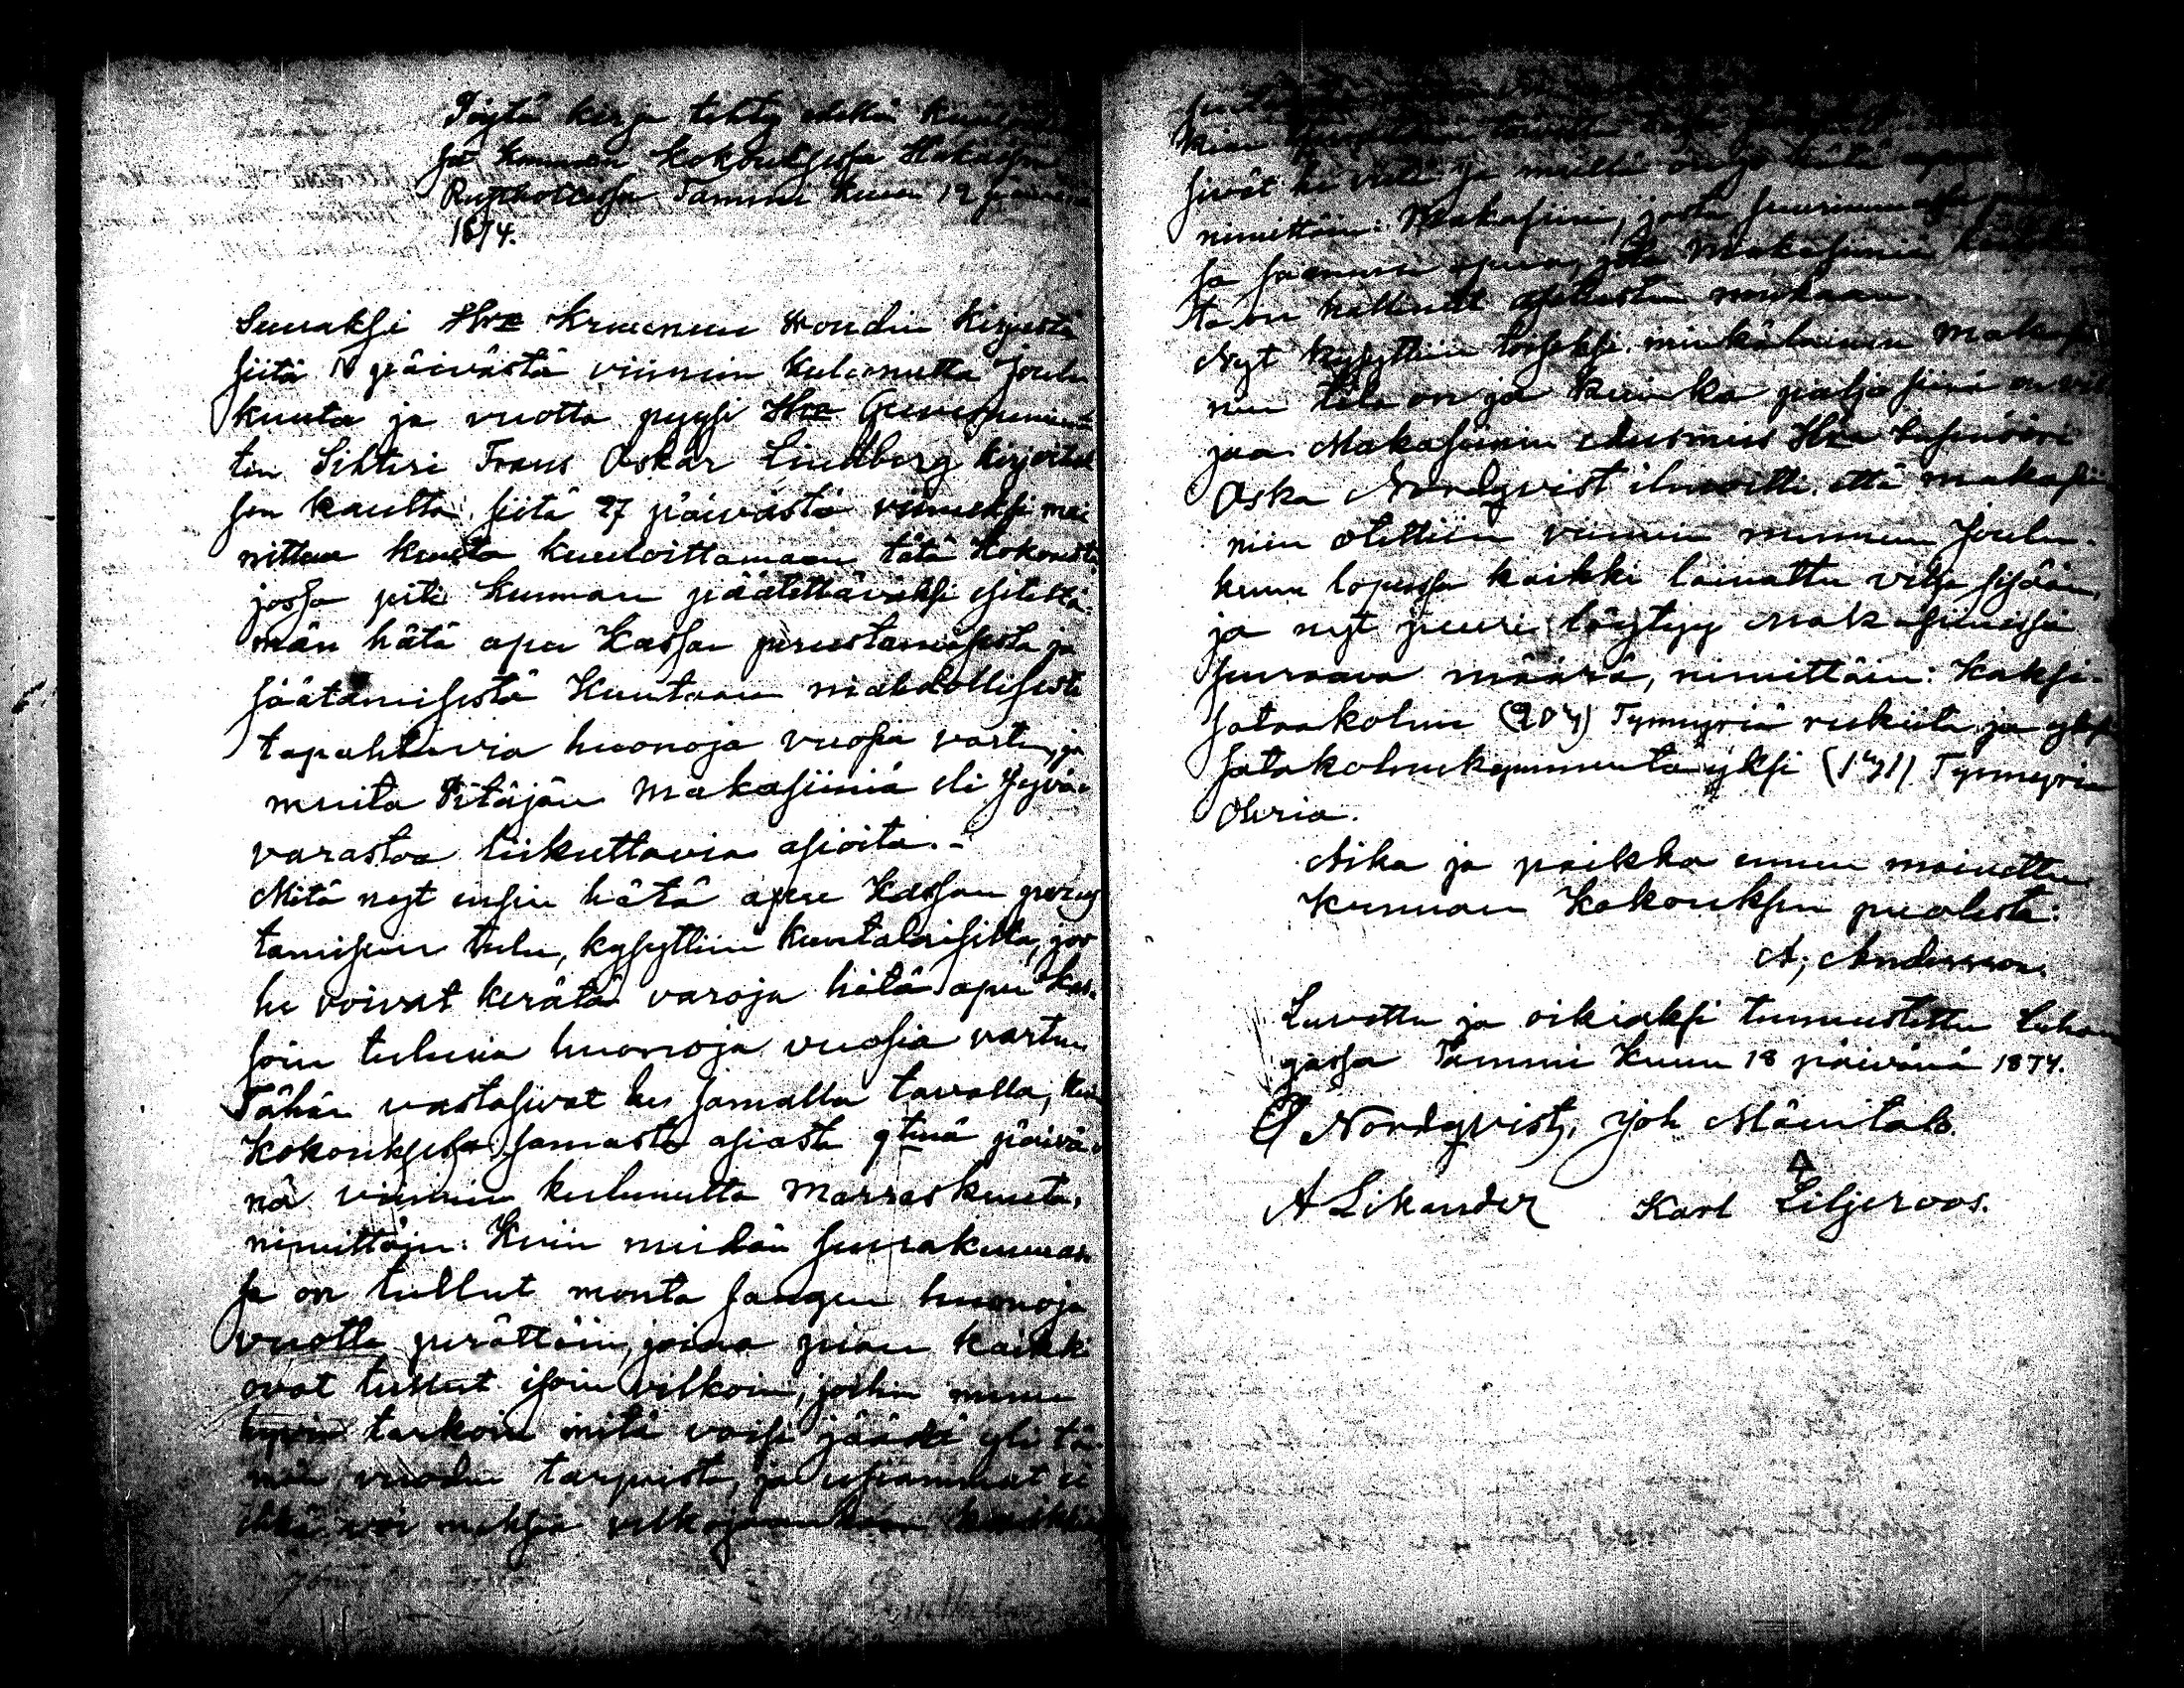 Pöytä kirja tehty
sä Kunnan kokouksessa Hakalan
Rusthollissa Tammi kuun 12 päivänä
1874.
Seuraksi Hra Kruunun Woudin kirjasta
siitä päivästä viimein kulunutta Joulu
kuuta ja vuotta pyysi Hra Guvernemen
tin Sihteri Frans Oskar Lindberg kirjoituk
sen kautta siitä 27 päivästä viimeksi mai
nittua kuuta kuuloittamaan tätä Kokousta
jossa piti Kunnan päätettäväksi esitettä-
män hätä apu Kassan perustamisesta ja
säätämisestä Kuntaan mahdollisesti
tapahtuvia huonoja vuosia vasten, ja
muita Pitäjän Makasiinia eli Jyvä-
varastoa liikuttavia asioita.-
Mitä nyt ensin hätä apu Kassan perus
tamiseen tulee, kysyttiin kuntalaisilta, jos
he voivat kerätä varoja hätä apu kas-
soin tulevia huonoja vuosia vasten
Tähän vastasivat he samalla tavalla, kuin
Kokouksessa samasta asiasta 9tenä päivä-
nä viimein kulunutta Marraskuuta,
nimittäin: Kuin meidän seurakunnas-
sa on tullut monta sangen huonoja
vuotta perättäin, joina pian kaikki
ovat tulleet isoin velkoin, johin menee
hyvin tarkoin mitä voisi jäädä yli tä-
män vuoden tarpeista, ja useammat ei
ehkä voi maksaa velkojaankaan

sivät he vielä: Ja meillä on jo hätä apu
nimittäin: Makasiini, josta suurimmassa
sa saamme apua, jota Makasiinia
ta on hallinnut asetusten mukaan.
Nyt kysyttiin toiseksi: minkälainen Makasii
nin tila on ja kuinka paljo siinä on vil
jaa. Makasiinin edusmies Hra Insinööri
Oska Nordqvist ilmoitti, että makasii
niin otettiin viimein menneen Joulu-
kuun lopussa kaikki lainattu vilja sisään,
ja nyt juuri löytyy Makasiinissa
seuraava määrä, nimittäin: Kaksi-
sataakolme (203) Tynnyriä rukiita ja yksi
satakolmekymmentäyksi (131) Tynnyriä
Ohria.
Aika ja paikka ennen mainittu
Kunnan Kokouksen puolesta:
A, Andersson.
Luvettu ja oikiaksi tunnustettu Luhan
gassa Tammi Kuun 18 päivänä 1874.
O Nordqvist, Joh Mänitalo.
A Likander Karl Liljeroos.